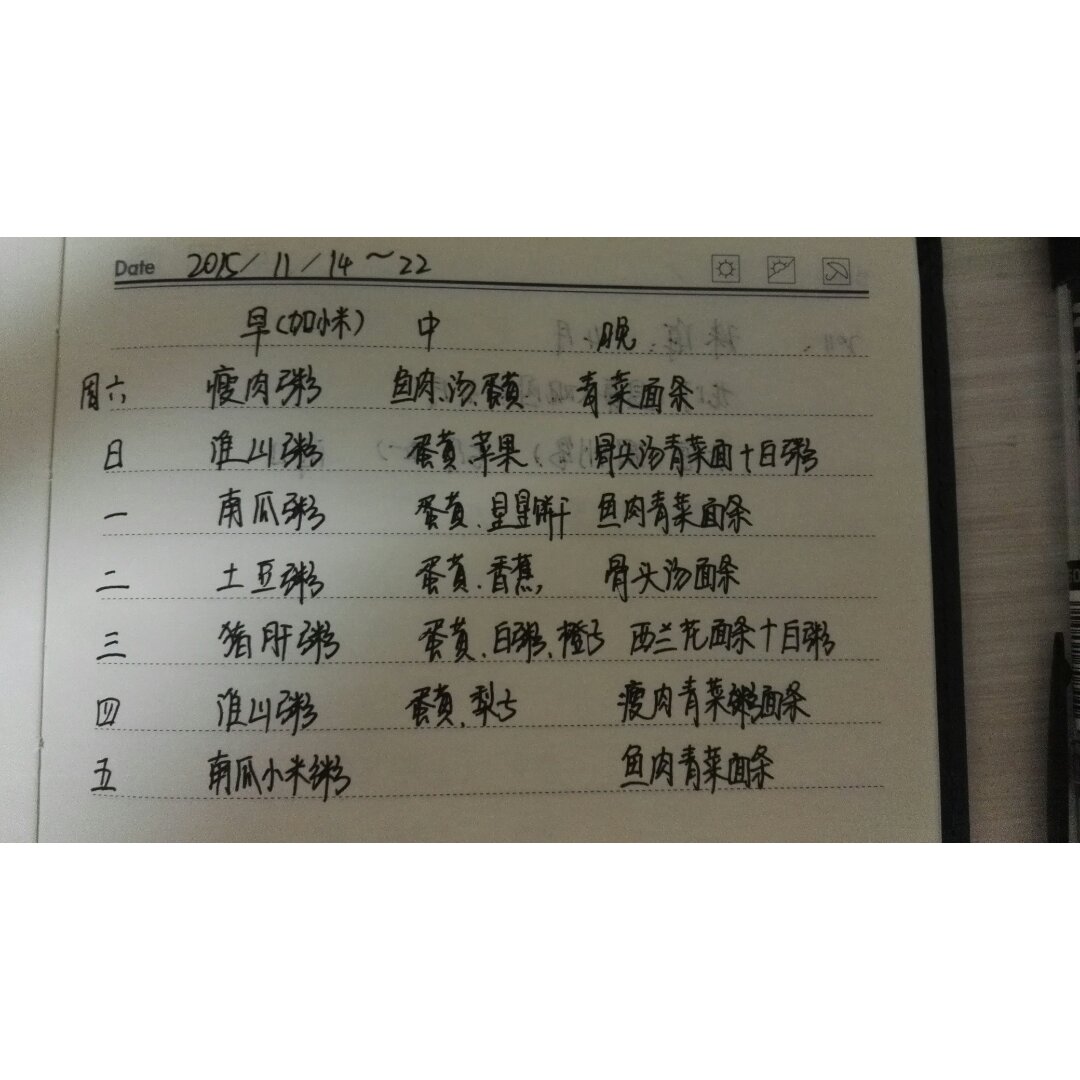 Date 2015/11/14～22
早(加小米) 中 晚
周六 瘦肉粥 鱼肉.汤.蛋黄 青菜面条
日 淮山粥 蛋黄.苹果 骨头汤青菜面+白粥
一 南瓜粥 蛋黄.星星饼干 鱼肉青菜面条
二 土豆粥 蛋黄.香蕉, 骨头汤面条
三 猪肝粥 蛋黄.白粥.橙子 西兰花面条+白粥
四 淮山粥 蛋黄.梨子 瘦肉青菜面条
五 南瓜小米粥 鱼肉青菜面条